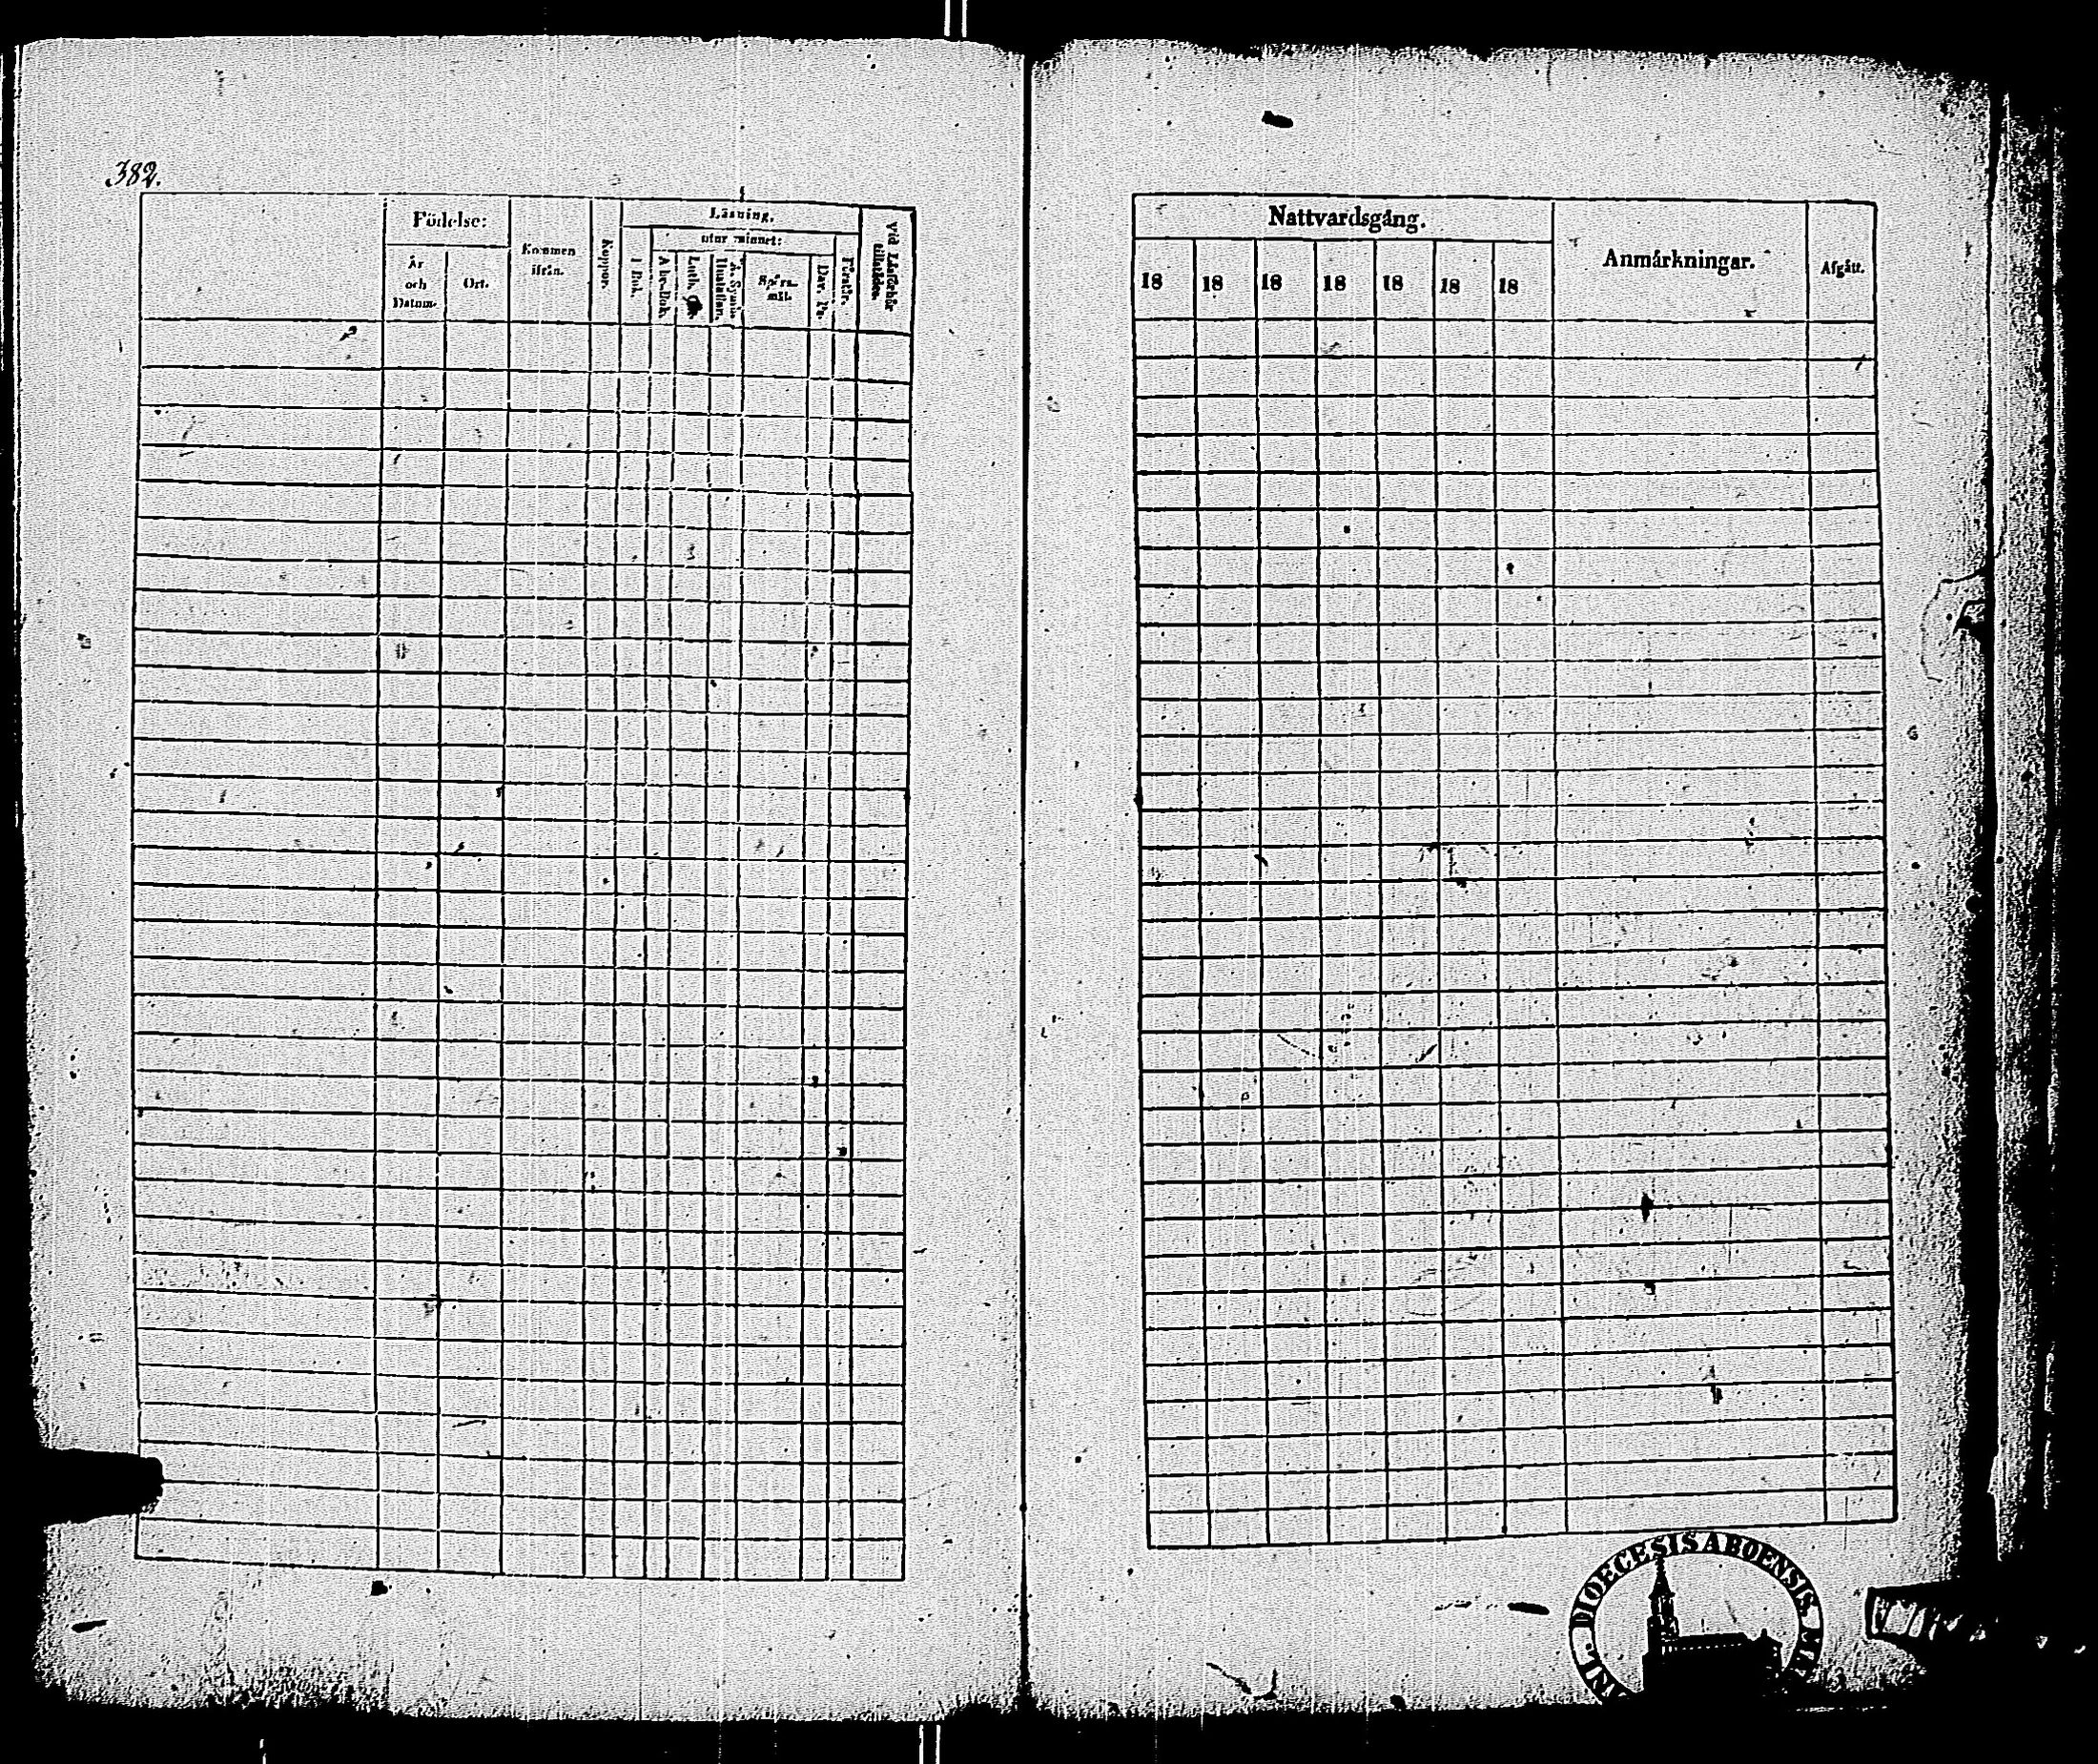 382.
Födelse:
År
och
Datum.
Ort.
Kommen
ifrån.
Koppor.
Läsning.
I Bok.
utur minnet:
A bc-Bok.
Luth.
Hustaflan.
Spörs-
mål.
Dav. Ps.
Förstår.
Vid Läsförhör
tillstädes.
Nattvardsgång.
18 18 18 18 18 18 18
Anmärkningar.
Afgått.
DIOECESIS ABOENSIS.